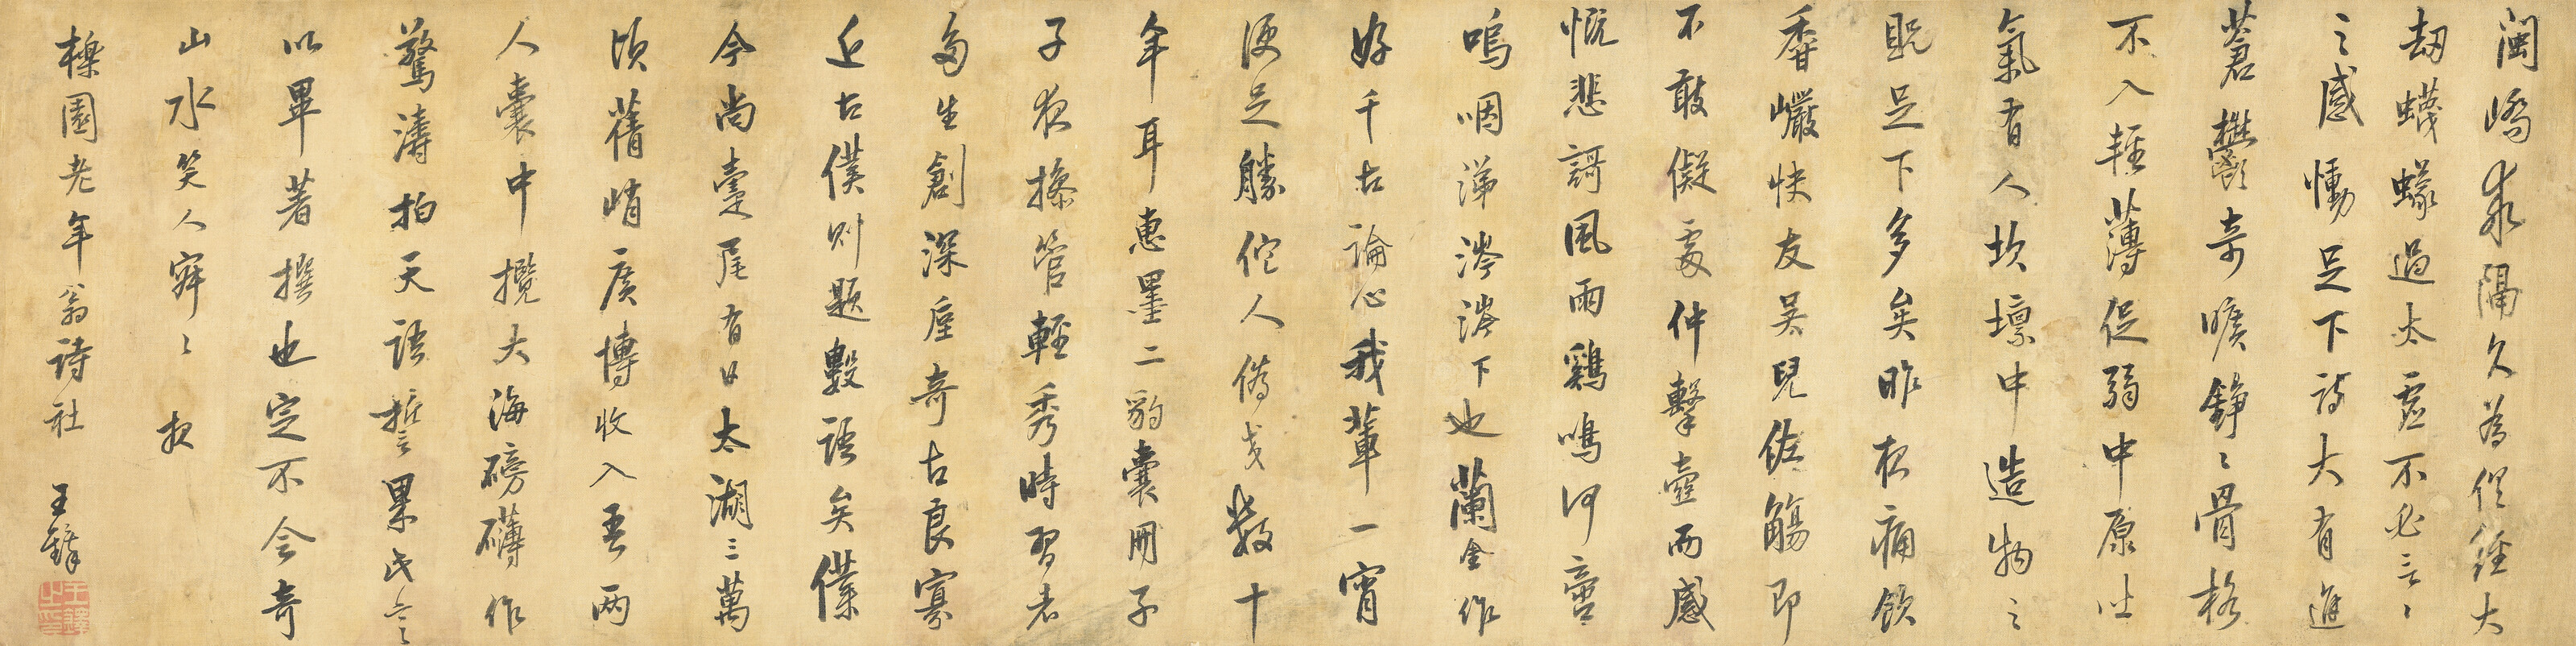 闽嶠余隔久為但經大
劫蠛蠓過太虛不必言〻
之感慟足下詩大有進
蒼鬱奇曠錚〻骨格
不入輕薄促弱中原吐
氣有人坎壈中造物之
貺足下多矣昨夜痛飲
香巖快友吳兒佐觴即
不敢儗處仲擊壺而感
慨悲謌風雨鷄鳴何啻
嗚咽涕涔涔下也蘭金作
好千古論心我輩一宵
便足勝佗人儔歲數十
年耳惠墨二豹囊用子
子夜搽管輕秀時習者
多生創深奇古良寡
近古僕則題數語矣僕
今尚臺尾有日太湖三萬
頃舊峭廣博收入吾兩
人囊中攬大海磅礴作
驚濤拍天語誓果此言
以畢著撰也定不令奇
山水笑人寂〻 夜
櫟園老年翁詩社 王鐸
王鐸之印